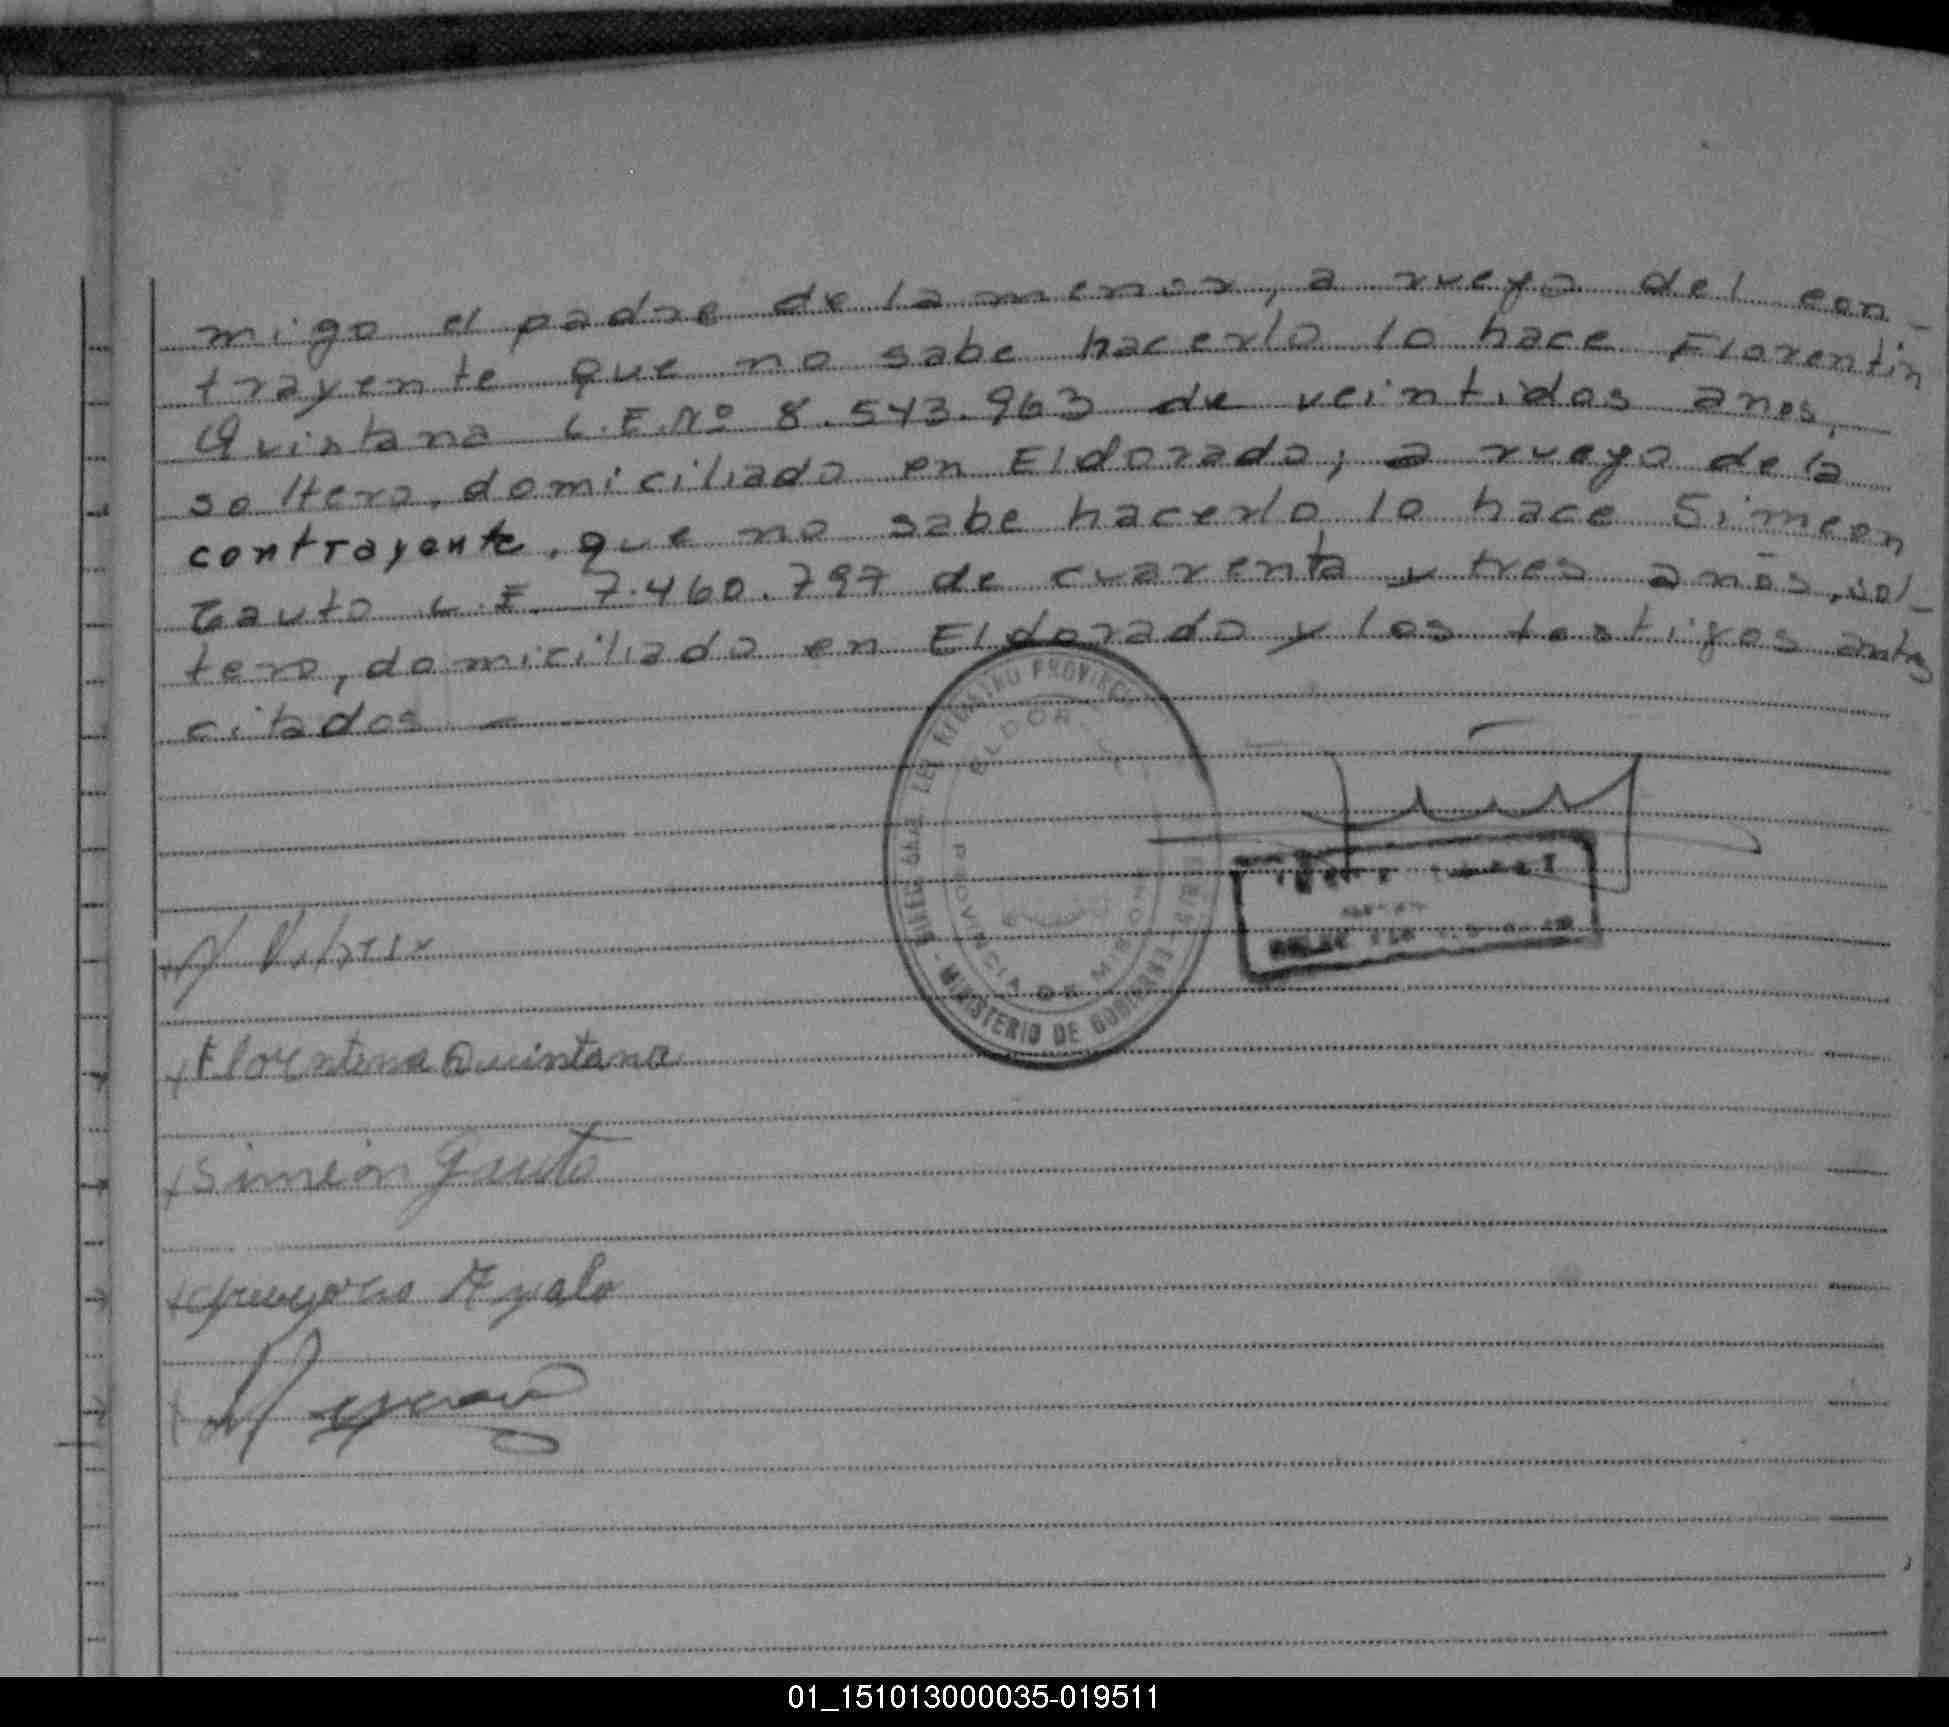 migo el padre de la menor, a ruego del con-
trayente que no sabe hacerlo lo hace Florentin
Quintana L.E.Nº 8.543.963 de veintidos anos,
soltero, domiciliado en Eldorado; a ruego de la
contrayente, que no sabe hacerlo lo hace Simeon
Gauto L.E. 7.460.797 de cuarenta y tres años, sol-
tero, domiciliado en Eldorado y los testigos antes
citados
REGISTRO PROVINCI
ELDOR
PROVINCIA DE MISIONES
MINISTERIO DE GOBIERNO
Florentina Quintana
Simeón Gauto
Gregorio Ayala
01_151013000035-019511